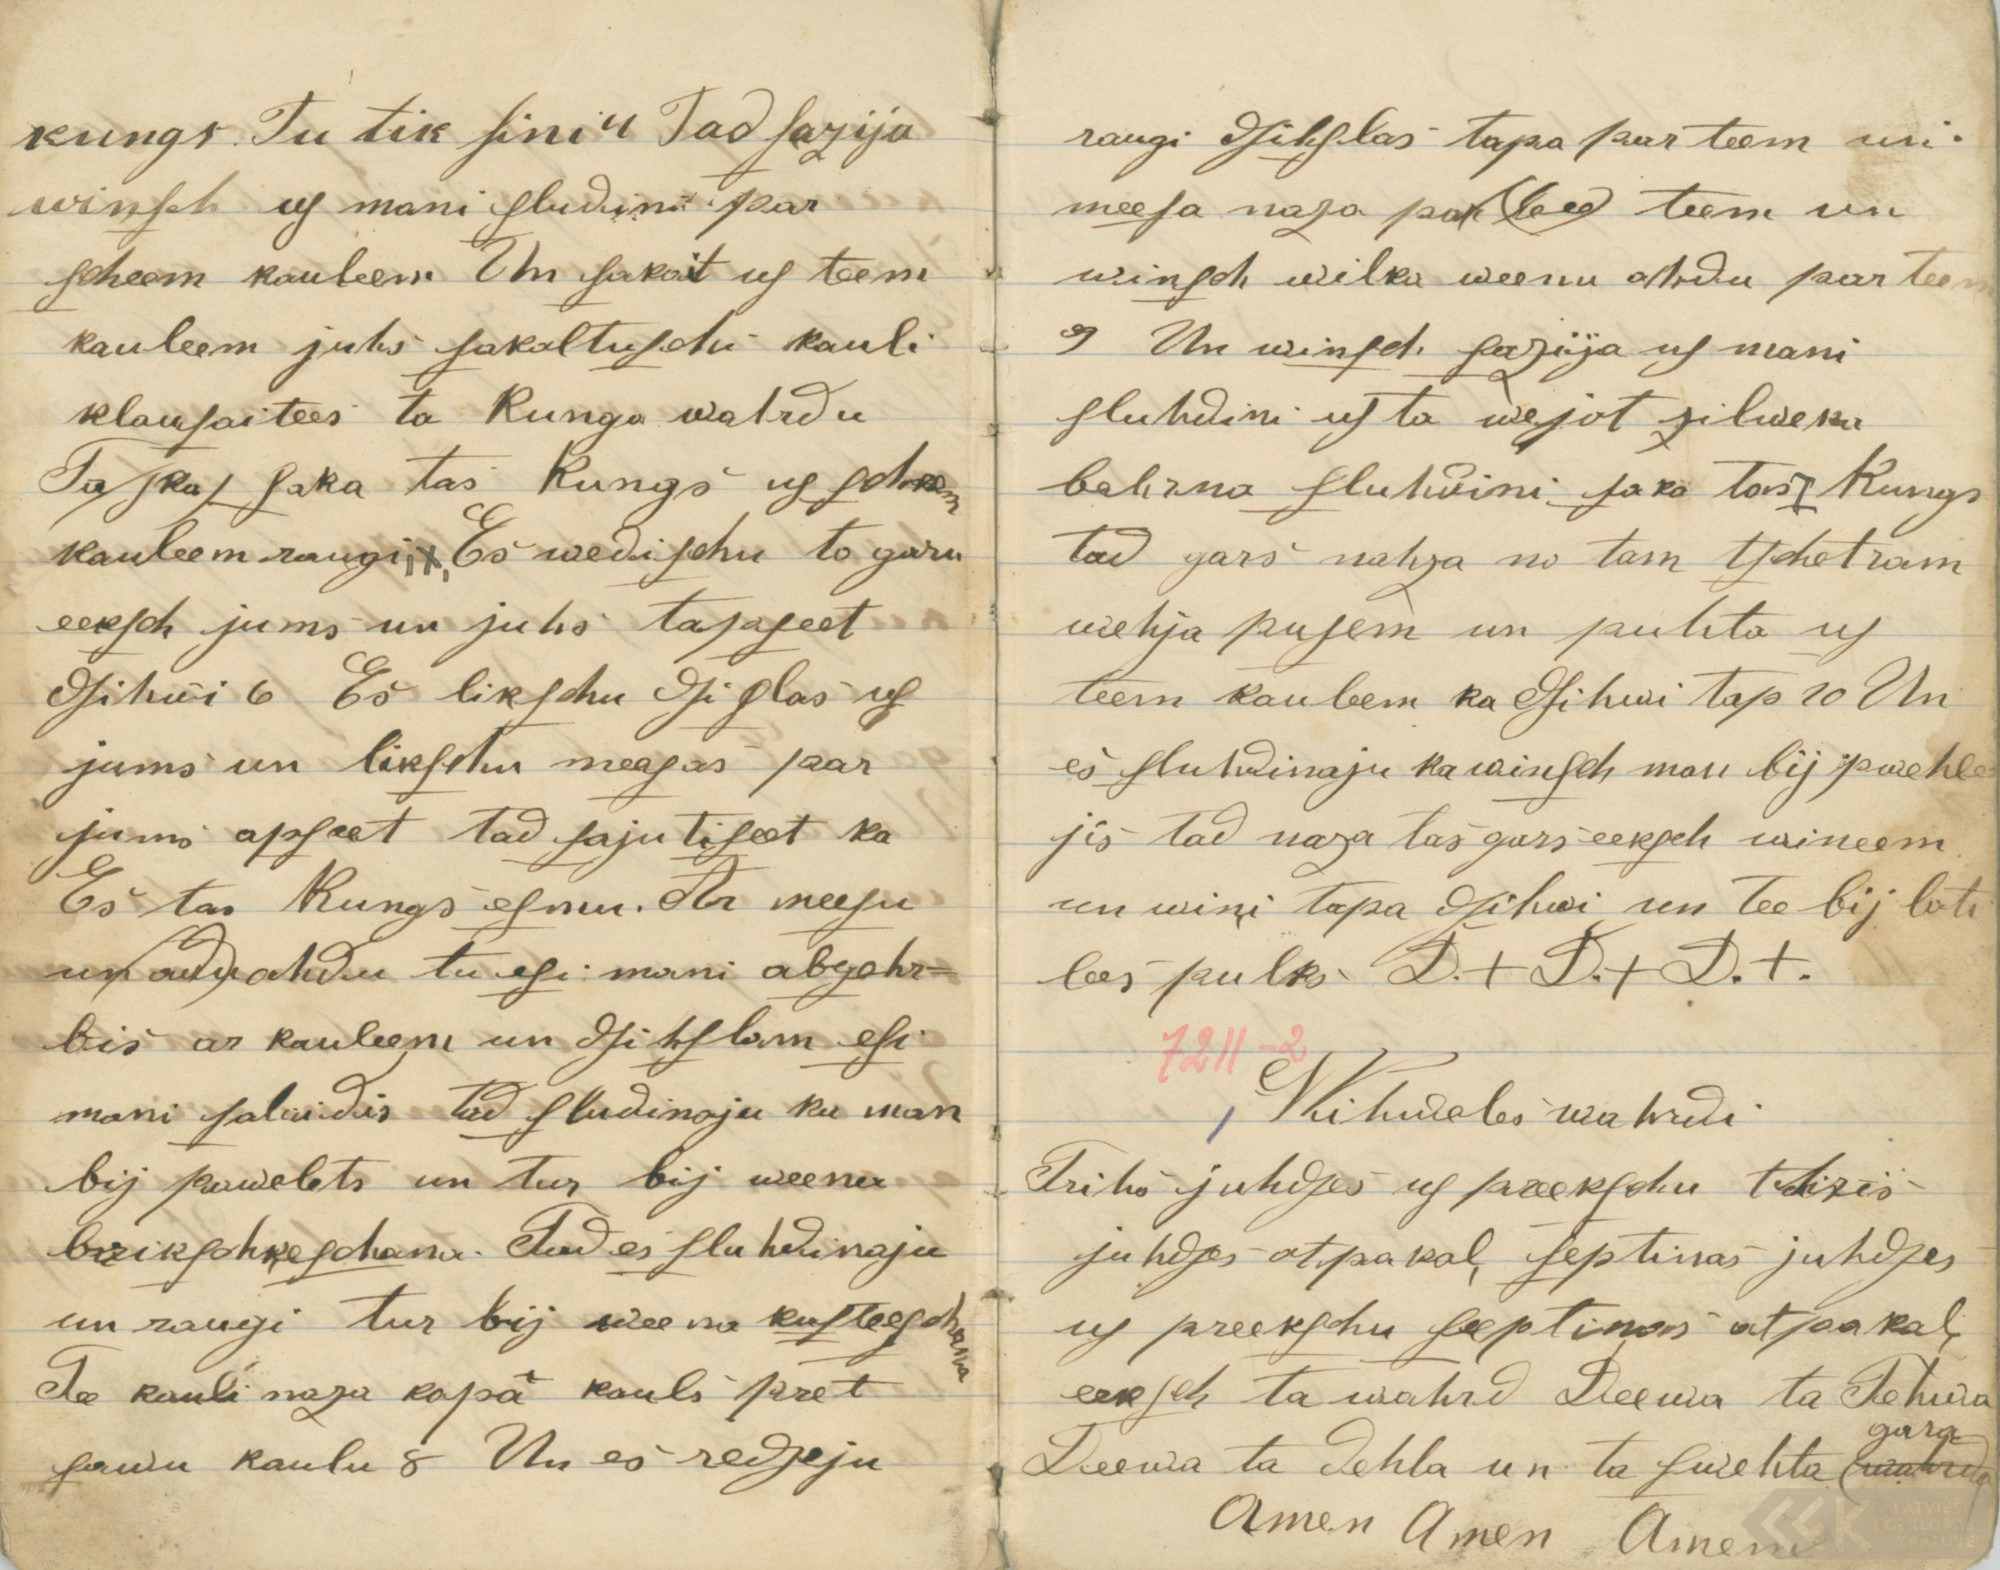 kungs. Tu tik sini 4 Tad sazija
winsch us mani sludini par
scheem kauleem Un sakait us teem
kauleem juhs sakaltuschi kauli
klausaitees ta Kunga wahrdu
Ta skas saka tas Kungs us scheem
kauleem raugi Es wedischu to garu
eeksch jums un juhs tapseet
dsihwi 6 Es likschu dsislas us
jums un likschu meesas par
jums apseet tad sajutiseet ka
Es tas Kungs esmu. Ar meesu
un ahdu tu esi mani abgehr=
bis ar kauleem un dsihslam esi
mani salaidis tad sludinaju ka man
bij pawelets un tur bij weena
brikschkeschana. Tad es sluhdinaju
un raugi tur bij weena kusteeschana
Te kauli naza kopa kauls pret
sawu kaulu 8 Un es redzeju
raugi dsihslas tapa par teem un
meesa naza par teem un
winsch wilka weenu ahdu par teem
9 Un winsch sazija us mani
sluhdini us ta wejot zilweka
behrna sluhdini saka tas Kungs
tad gars nahza no tam tschetram
wehja pusem un puhta us
teem kauleem ka dsihwi tap 10 Un
es sluhdinaju ka winsch man bij pawehle
jis tad naza tas gars eeksch wineem
un wini tapa dsihwi un tee bij loti
lees pulks D. + D. + D. +.
7211-2
Wihweles wahrdi
Trihs juhdses us preekschu trihzis
juhdses atpakal, septinas juhdzes
us preekschu septinas atpakal,
eeksch ta wahrd Deewa ta Tehwa
Deewa ta dehla un ta swehta (wahrda)
gara
Amen Amen Amen
LATVIEŠU
FOLKLORAS
KRĀTUVE